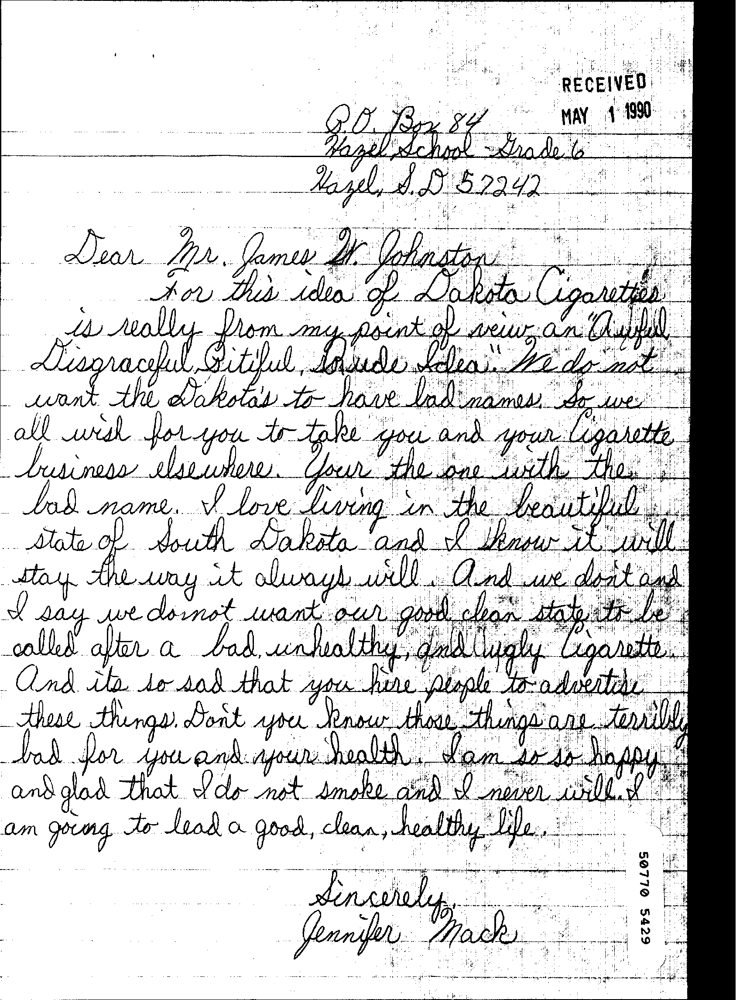 RECEIVED
MAY 1 1990
P.O. Box 84
Hazel School - Grade 6
Hazel, S.D 57242
Dear Mr. James W. Johnston
For this idea of Dakota Cigarettes
is really from my point of veiw an "Awful
Disgraceful, Pitiful, Rude Idea". We do not
want the Dakota's to have bad names. So we
all wish for you to take you and your Cigarette
business elsewhere. Your the one with the
bad name. I love living in the beautiful
state of South Dakota and I know it will
stay the way it always will. And we don't and
I say we do not want our good clean state to be
called after a bad, unhealthy, and ugly Cigarette.
And its so sad that you hire people to advertise
these things. Don't you know those things are terribly
bad for you and your health. I am so so happy
and glad that I do not smoke and I never will. I
am going to lead a good, clean, healthy life.
Sincerely,
Jennifer Mack
50770 5429